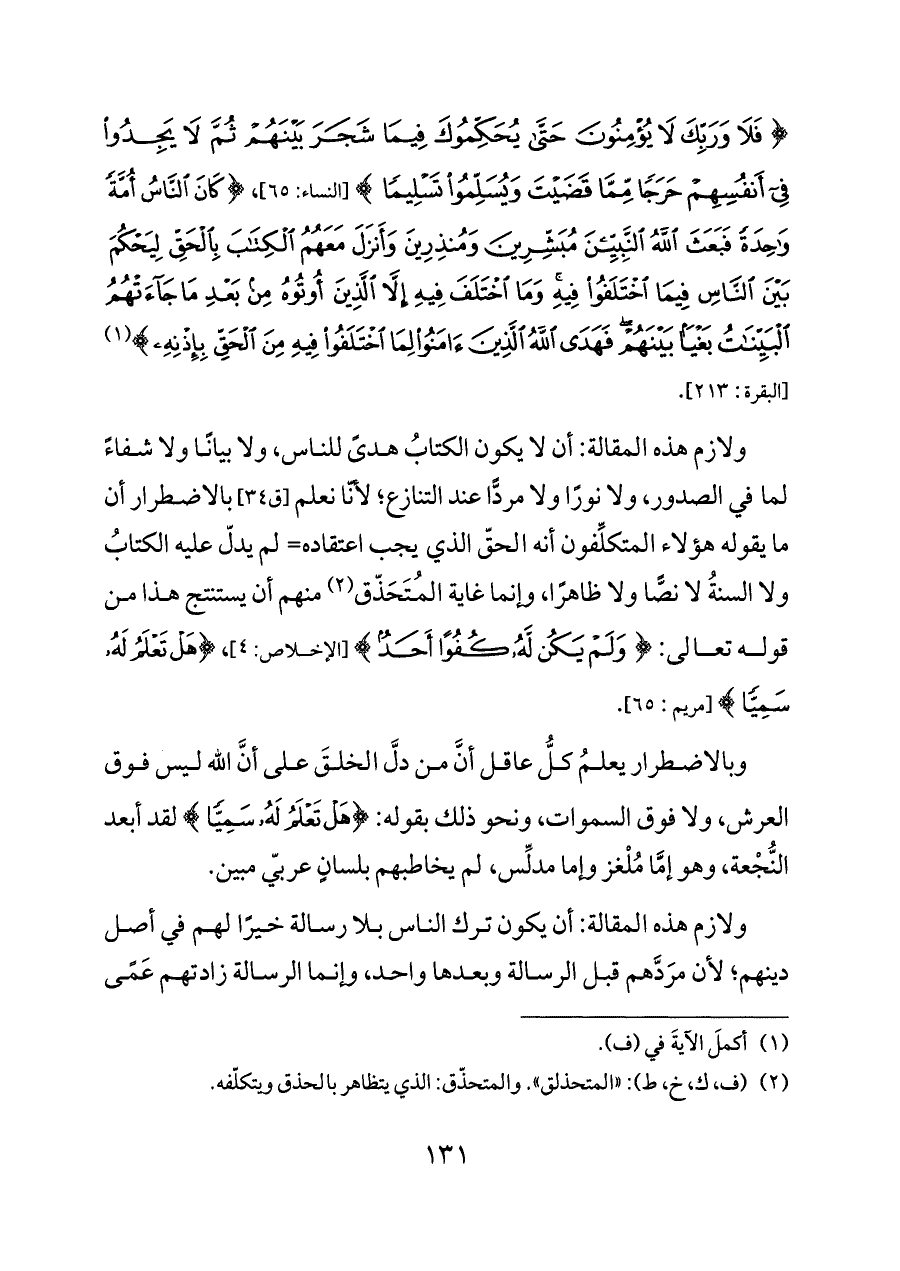 ﴿ فَلَا وَرَبِّكَ لَا يُؤْمِنُونَ حَتَّىٰ يُحَكِّمُوكَ فِيمَا شَجَرَ بَيْنَهُمْ ثُمَّ لَا يَجِدُوا۟
فِىٓ أَنفُسِهِمْ حَرَجًا مِّمَّا قَضَيْتَ وَيُسَلِّمُوا۟ تَسْلِيمًا ﴾ [النساء: ٦٥]، ﴿ كَانَ ٱلنَّاسُ أُمَّةً
وَٰحِدَةً فَبَعَثَ ٱللَّهُ ٱلنَّبِيِّـۧنَ مُبَشِّرِينَ وَمُنذِرِينَ وَأَنزَلَ مَعَهُمُ ٱلْكِتَٰبَ بِٱلْحَقِّ لِيَحْكُمَ
بَيْنَ ٱلنَّاسِ فِيمَا ٱخْتَلَفُوا۟ فِيهِ ۚ وَمَا ٱخْتَلَفَ فِيهِ إِلَّا ٱلَّذِينَ أُوتُوهُ مِنۢ بَعْدِ مَا جَآءَتْهُمُ
ٱلْبَيِّنَٰتُ بَغْيًۢا بَيْنَهُمْ ۖ فَهَدَى ٱللَّهُ ٱلَّذِينَ ءَامَنُوا۟ لِمَا ٱخْتَلَفُوا۟ فِيهِ مِنَ ٱلْحَقِّ بِإِذْنِهِۦ ﴾(١)
[البقرة: ٢١٣].
ولازم هذه المقالة: أن لا يكون الكتابُ هدىً للناس، ولا بيانًا ولا شفاءً
لما في الصدور، ولا نورًا ولا مردًّا عند التنازع؛ لأنّا نعلم [ق٣٤] بالاضطرار أن
ما يقوله هؤلاء المتكلِّفون أنه الحقّ الذي يجب اعتقاده= لم يدلّ عليه الكتابُ
ولا السنةُ لا نصًّا ولا ظاهرًا، وإنما غاية المُتَحَذّق(٢) منهم أن يستنتج هذا من
قوله تعالى: ﴿ وَلَمْ يَكُن لَّهُۥ كُفُوًا أَحَدٌۢ ﴾ [الإخلاص: ٤]، ﴿هَلْ تَعْلَمُ لَهُۥ
سَمِيًّا ﴾ [مريم: ٦٥].
وبالاضطرار يعلمُ كلُّ عاقل أنَّ من دلَّ الخلقَ على أنَّ الله ليس فوق
العرش، ولا فوق السموات، ونحو ذلك بقوله: ﴿هَلْ تَعْلَمُ لَهُۥ سَمِيًّا ﴾ لقد أبعد
النُّجْعة، وهو إمَّا مُلْغز وإما مدلِّس، لم يخاطبهم بلسانٍ عربيّ مبين.
ولازم هذه المقالة: أن يكون ترك الناس بلا رسالة خيرًا لهم في أصل
دينهم؛ لأن مرَدَّهم قبل الرسالة وبعدها واحد، وإنما الرسالة زادتهم عَمًى
(١) أكملَ الآيةَ في (ف).
(٢) (ف، ك، خ، ط): «المتحذلق». والمتحذّق: الذي يتظاهر بالحذق ويتكلّفه.
١٣١